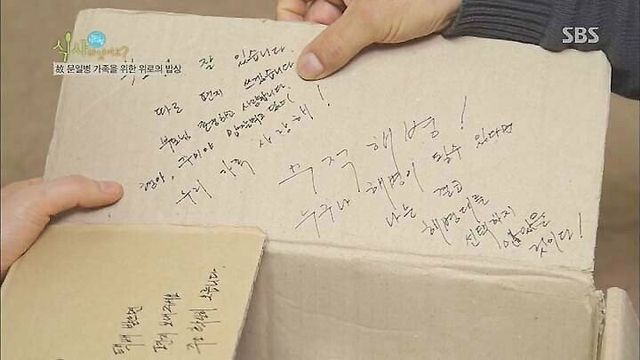 식사하셨어요?
SBS
故 문일병 가족을 위한 위로의 밥상
잘 있습니다.
따로 편지 쓰겠습니다.
부모님 존경하고 사랑합니다.
우리 가족 사랑해!
무적 해병!
누구나 해병이 될수 있다면
나는 결코
해병대를
선택하지
않았을
것이다!
택배 받으면
편지